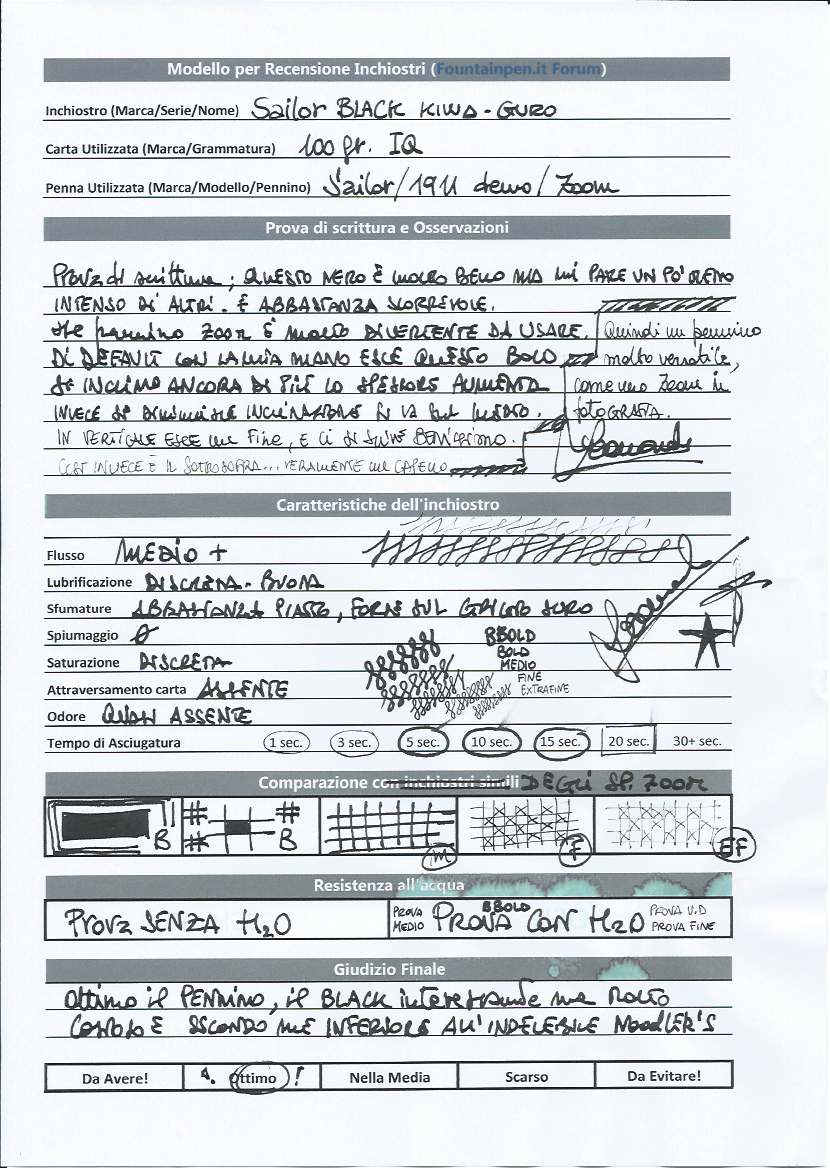 Modello per Recensione Inchiostri (Fountainpen.it Forum)
Inchiostro (Marca/Serie/Nome) Sailor BLACK KIWA-GURO
Carta Utilizzata (Marca/Grammatura) 100 gr. IQ
Penna Utilizzata (Marca/Modello/Pennino) Sailor/1911 demo/Zoom
Prova di scrittura e Osservazioni
Prova di scrittura; QUESTO NERO È MOLTO BELLO MA MI PARE UN PO' MENO
INTENSO DI ALTRI. È ABBASTANZA SCORREVOLE.
Il pennino ZOOM È MOLTO DIVERTENTE DA USARE.
DI DEFAULT CON LA MIA MANO ESCE QUESTO BOLD
SE INCLINO ANCORA DI PIÙ LO SPESSORE AUMENTA
INVECE SE DIMINUISCE INCLINAZIONE SI VA SUL MEDIO.
IN VERTICALE ESCE un Fine, E CI SI SCRIVE BENISSIMO.
COSÌ INVECE È IL SOTTOSOPRA... VERAMENTE un CAPELLO
Quindi un pennino
molto versatile,
come uno Zoom in
fotografia.
Caratteristiche dell'inchiostro
Flusso MEDIO +
Lubrificazione DISCRETA-BUONA
Sfumature ABBASTANZA PIATTO, FORSE SUL GRIGIO SCURO
Spiumaggio 0
Saturazione DISCRETA
Attraversamento carta ASSENTE
Odore QUASI ASSENTE
BBOLD
BOLD
MEDIO
FINE
EXTRAFINE
Tempo di Asciugatura 1 sec. 3 sec. 5 sec. 10 sec. 15 sec. 20 sec. 30+ sec.
Comparazione con inchiostri simili DEGLI SP. ZOOM
B B M F EF
Resistenza all'acqua
Prova SENZA H2O
PROVA MEDIO
BBOLD
PROVA CON H2O
PROVA FINE
Giudizio Finale
Ottimo il PENNINO, il BLACK interessante ma MOLTO
COSTOSO E SECONDO ME INFERIORE ALL'INDELEBILE NOODLER'S
Da Avere! Ottimo ! Nella Media Scarso Da Evitare!